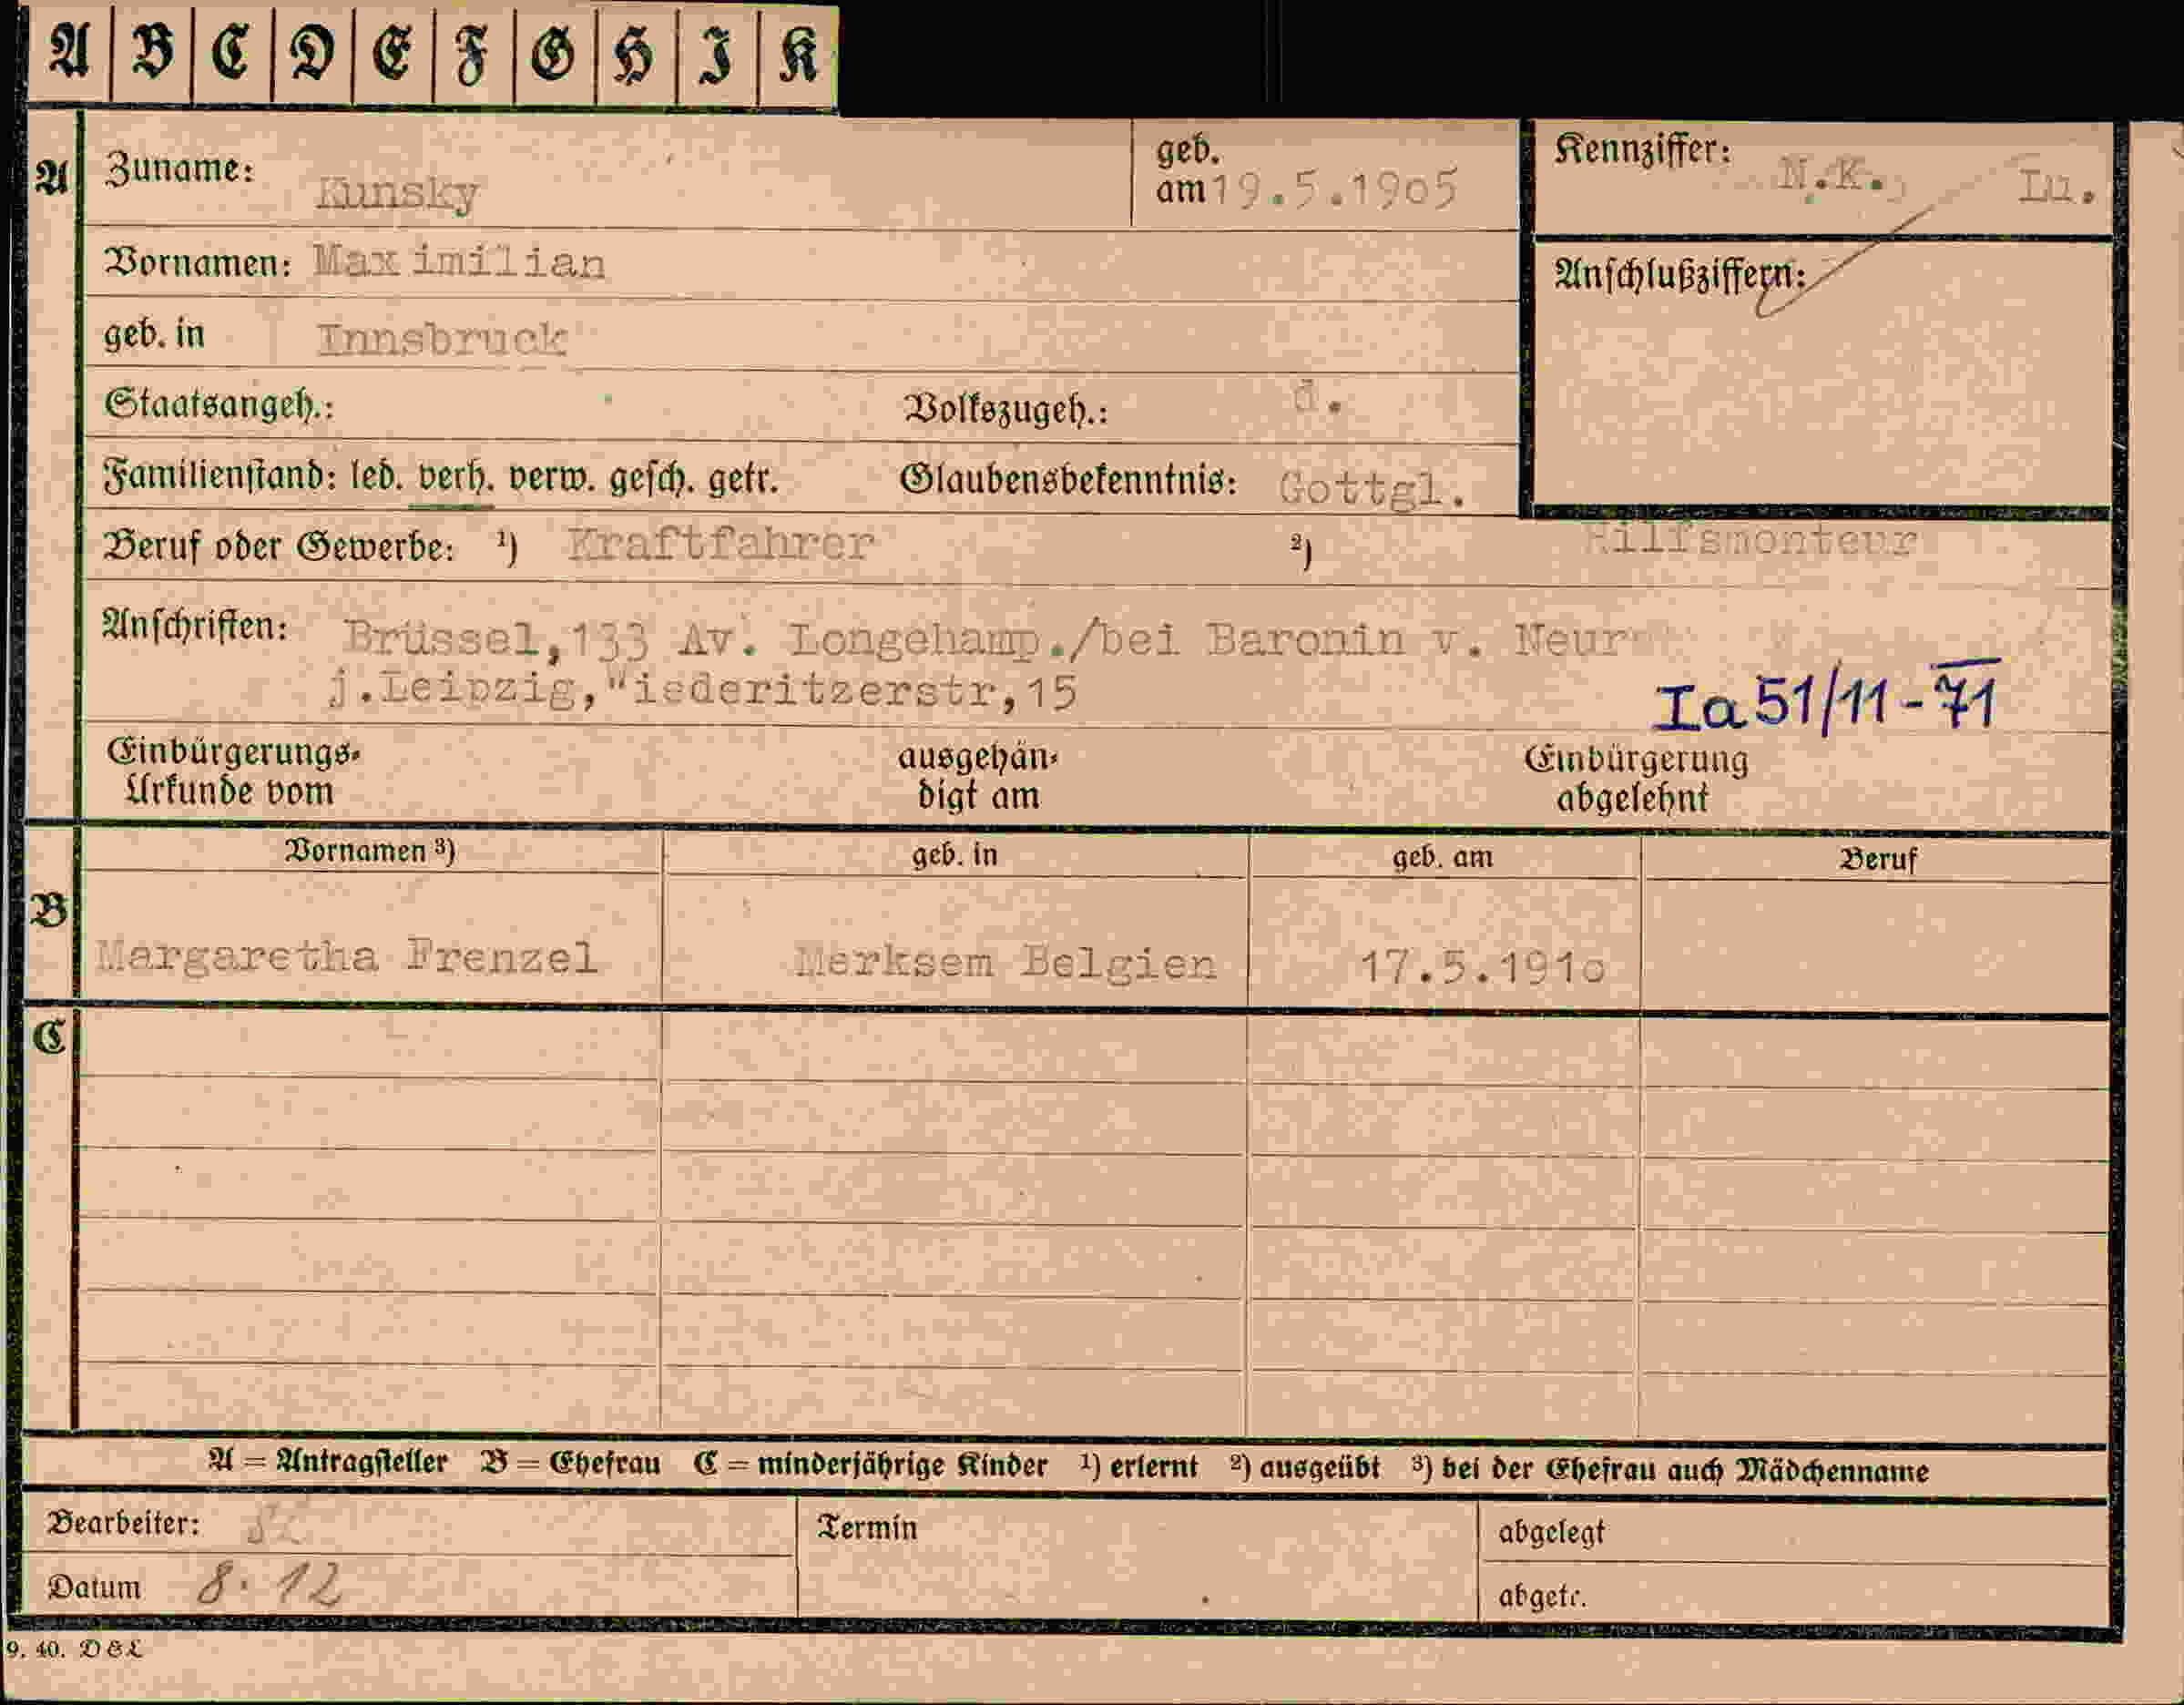 A B C D E F G H I K
A Zuname: Kunsky geb. am 19.5.1905 Kennziffer: N.K. Lu.
Vornamen: Maximilian
Anschlußziffern:
geb. in Innsbruck
Staatsangeh.: Volkszugeh.: d.
Familienstand: led. verh. verw. gesch. getr. Glaubensbekenntnis: Gottgl.
Beruf oder Gewerbe: 1) Kraftfahrer 2) Hilfsmonteur
Anschriften: Brüssel, 133 Av. Longchamp./bei Baronin v. Neur
j.Leipzig, Wiederitzerstr, 15
Ia 51/11-71
Einbürgerungs- ausgehän- Einbürgerung
Urkunde vom digt am abgelehnt
Vornamen 3) geb. in geb. am Beruf
B
Margaretha Frenzel Merksem Belgien 17.5.1910
C
A = Antragsteller B = Ehefrau C = minderjährige Kinder 1) erlernt 2) ausgeübt 3) bei der Ehefrau auch Mädchenname
Bearbeiter: Termin abgelegt
Datum 8.12 abgetr.
9. 40. DGL